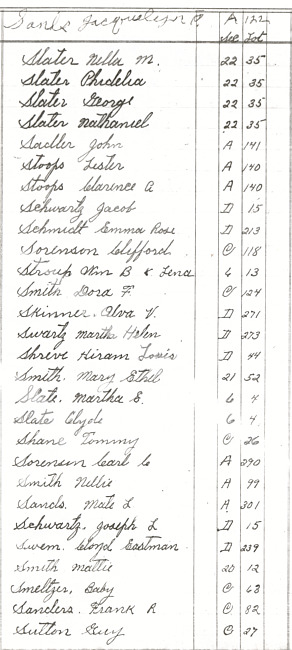 Sands Jacquelyn R. A 122
Sec Lot
Slater Nella M. 22 35
Slater Phidelia 22 35
Slater George 22 35
Slater Nathaniel 22 35
Sadler John A 141
Stoops Lester A 140
Stoops Clarence A A 140
Schwartz Jacob D 15
Schmidt Emma Rose D 213
Sorenson Clifford C 118
Stroup Wm B & Lena 6 13
Smith Dora F. C 124
Skinner, Alva V. D 271
Swartz Martha Helm D 273
Shreve Hiram Louis D 44
Smith, Mary Ethel 21 52
Slate, Martha E. 6 4
Slate Clyde 6 4
Shane Tommy C 26
Sorensen Carl C A 290
Smith Nellie A 99
Sands, Mate L A 301
Schwartz, Joseph L D 15
Swem, Cloyd Eastman D 239
Smith Mattie 20 12
Smeltzer, Baby C 63
Sanders, Frank R C 82
Sutton Guy C 27